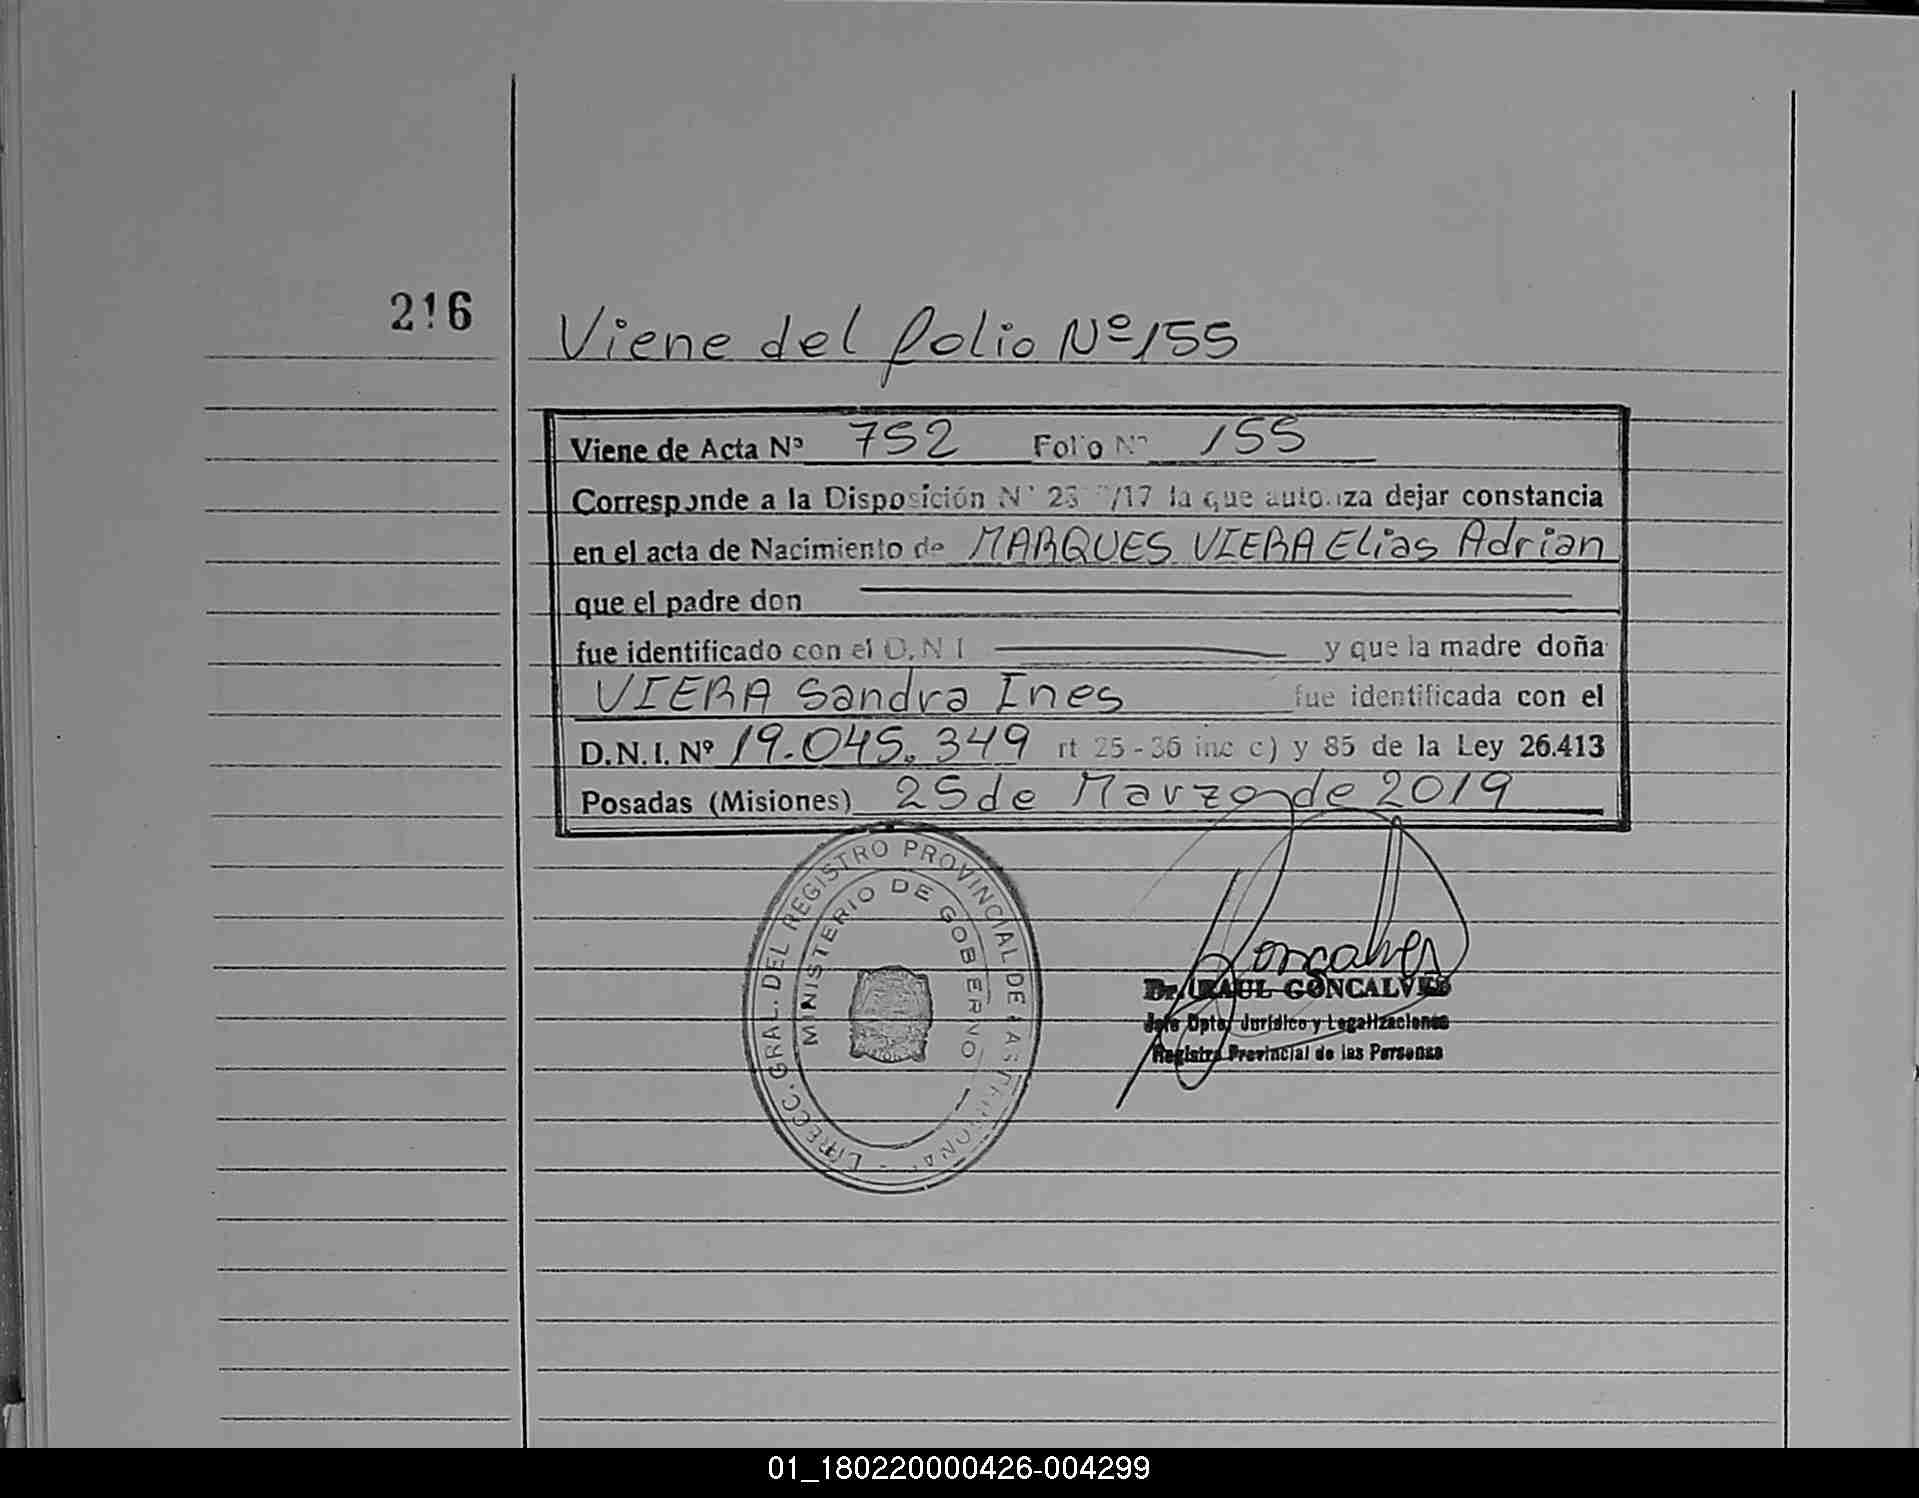 216
Viene del folio Nº 155
Viene de Acta Nº 752 Folio Nº 155
Corresponde a la Disposición Nº /17 la que autoriza dejar constancia
en el acta de Nacimiento de MARQUES VIERA Elias Adrian
que el padre don
fue identificado con el D.N.I y que la madre doña
VIERA Sandra Ines fue identificada con el
D.N.I. Nº 19.045.349 rt 25-36 inc c) y 85 de la Ley 26.413
Posadas (Misiones) 25 de Marzo de 2019
DIRECC. GRAL. DEL REGISTRO PROVINCIAL DE LAS PERSONAS
MINISTERIO DE GOBIERNO
Goncalves
Dr. RAUL GONCALVES
Jefe Dpto. Jurídico y Legalizaciones
Registro Provincial de las Personas
01_180220000426-004299